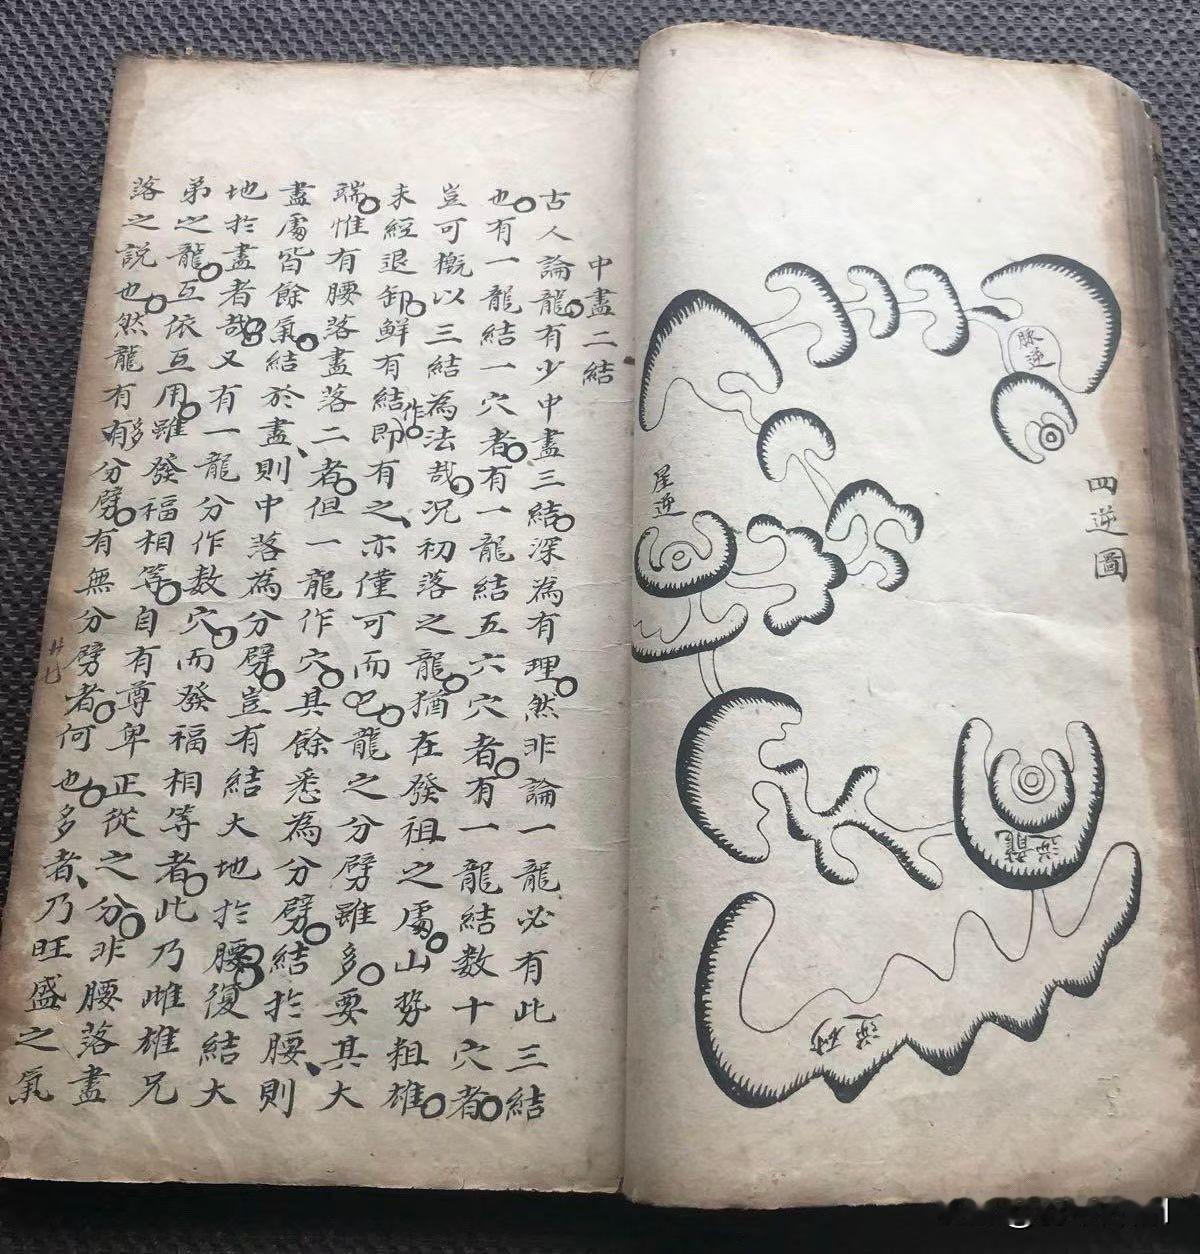 四逆圖
脉逆
星逆
逆龍
逆砂
中盡二結
古人論龍。有少中盡三結。深為有理。然非論一龍必有此三結
也。有一龍結一穴者。有一龍結五六穴者。有一龍結数十穴者。
豈可概以三結為法哉。况初落之龍。猶在發祖之處。山势粗雄。
未經退卸。鮮有結作。即有之、亦僅可而已。龍之分劈雖多。要其大
端。惟有腰落盡落二者。但一龍作穴。其餘悉為分劈。結於腰、則
盡處皆餘氣。結於盡、則中落為分劈。豈有結大地於腰。復結大
地於盡者哉。又有一龍分作数穴。而發福相等者。此乃雌雄兄
弟之龍。互依互用。雖發福相等。自有尊卑正從之分。非腰落盡
落之說也。然龍有有多分劈。有無分劈者。何也。多者、乃旺盛之氣
廿七